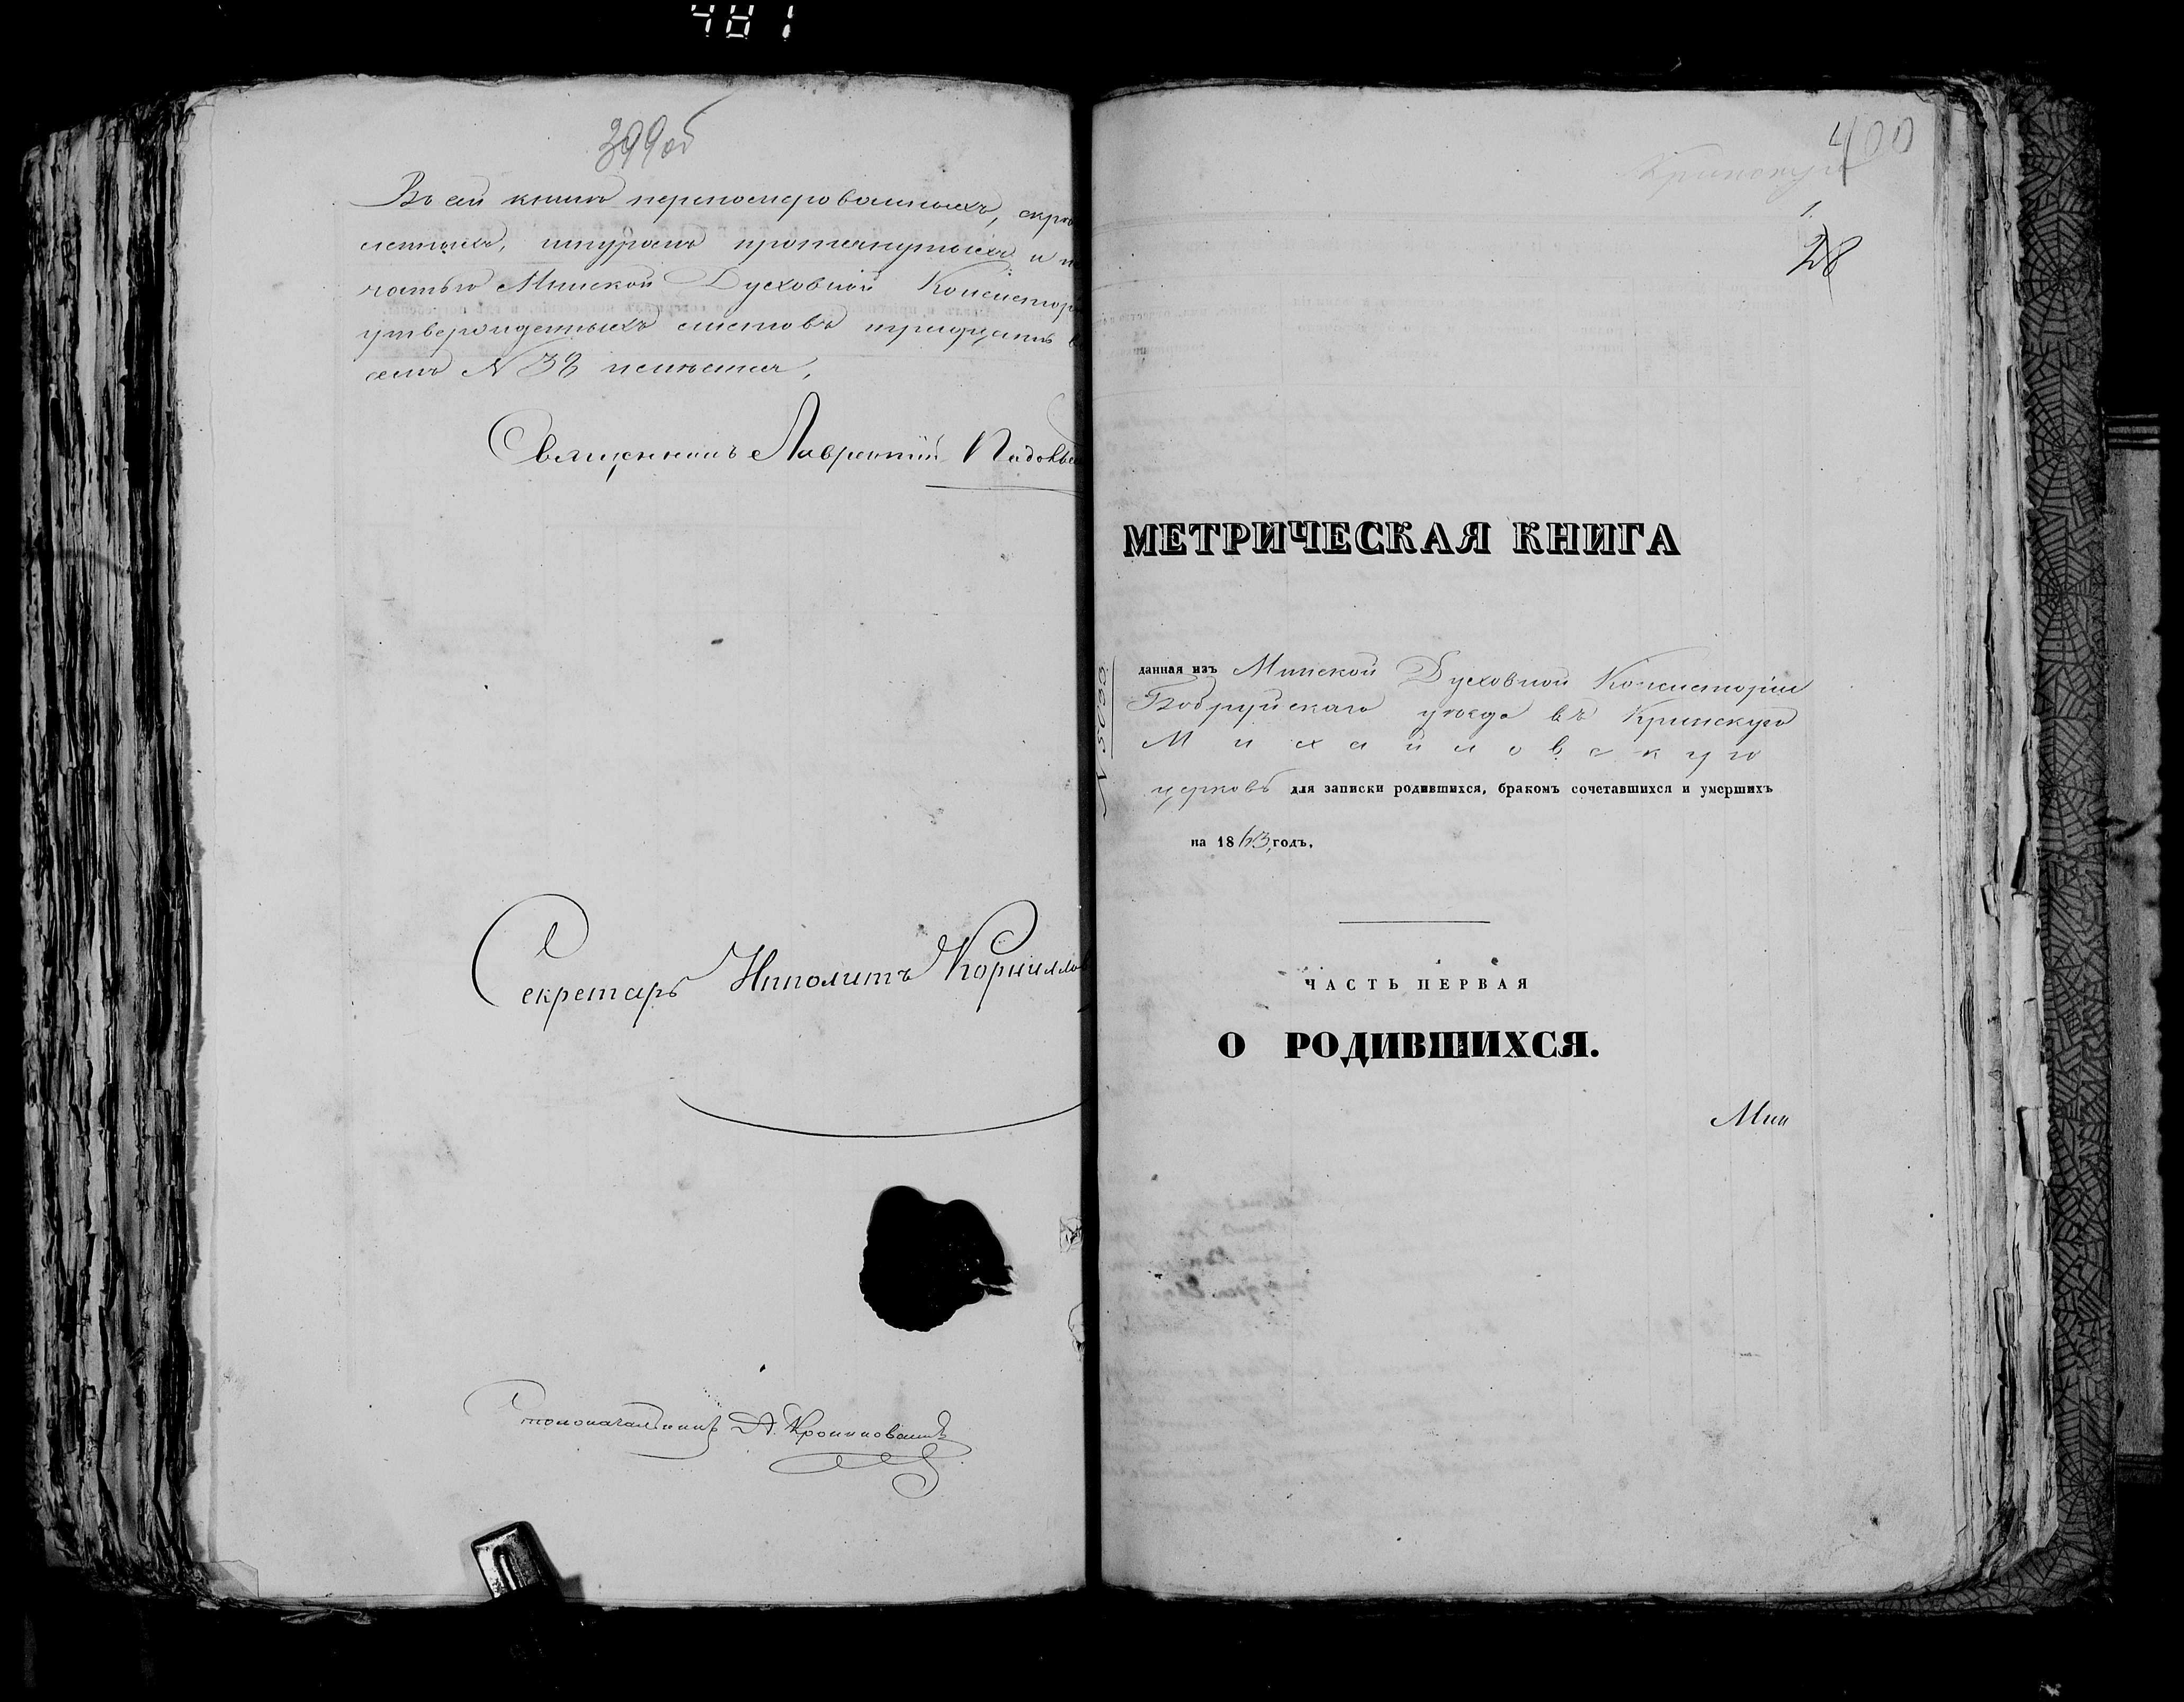 481
399об
Въ сей книгѣ перенумерованныхъ, скрѣ
пленныхъ, шнуромъ протянутыхъ и пе
чатью Минской Духовной Консистор
утвержденныхъ листовъ тридцать в
семь N 38 
Священникъ Лаврентій
Секретарь Ипполитъ Корниллов
Столоначальникъ А.
400
Кринскую
1.
28
МЕТРИЧЕСКАЯ КНИГА
данная изъ Минской Духовной Консисторіи
Бобруйскаго уѣзда въ Кринскую
Михайловскую
церковь для записки родившихся, бракомъ сочетавшихся и умершихъ
на 1863 годъ.
ЧАСТЬ ПЕРВАЯ
О РОДИВШИХСЯ.
Мин